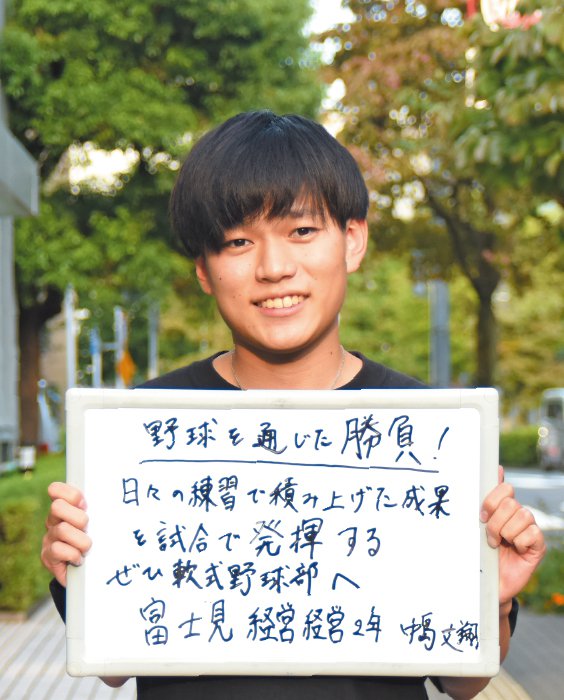 野球を通じた勝負!
日々の練習で積み上げた成果
を試合で発揮する
ぜひ軟式野球部へ
富士見 経営経営2年 中島文翔